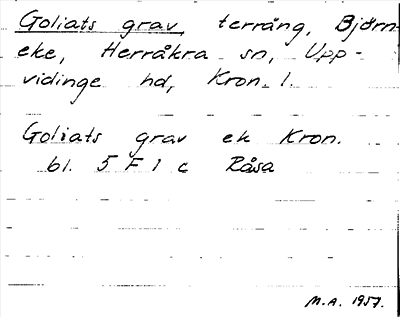 Goliats grav, terräng, Björn-
eke, Herråkra sn, Upp-
vidinge hd, Kron. l.
Goliats grav ek Kron.
bl. 5 F 1 c Råsa
M.A. 1957.